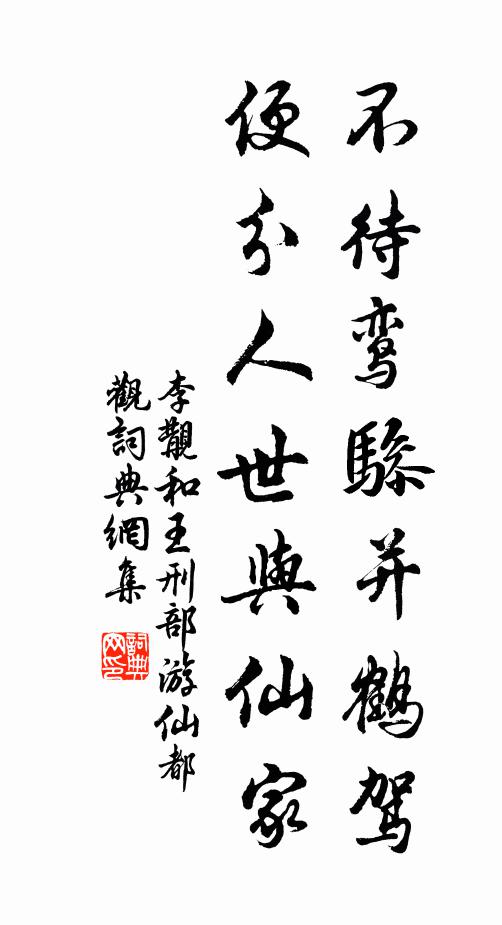 不待鸾驂并鹤驾
便分人世與仙家
李觀和王刑部游仙都
觀詞典網集
詞典
网印